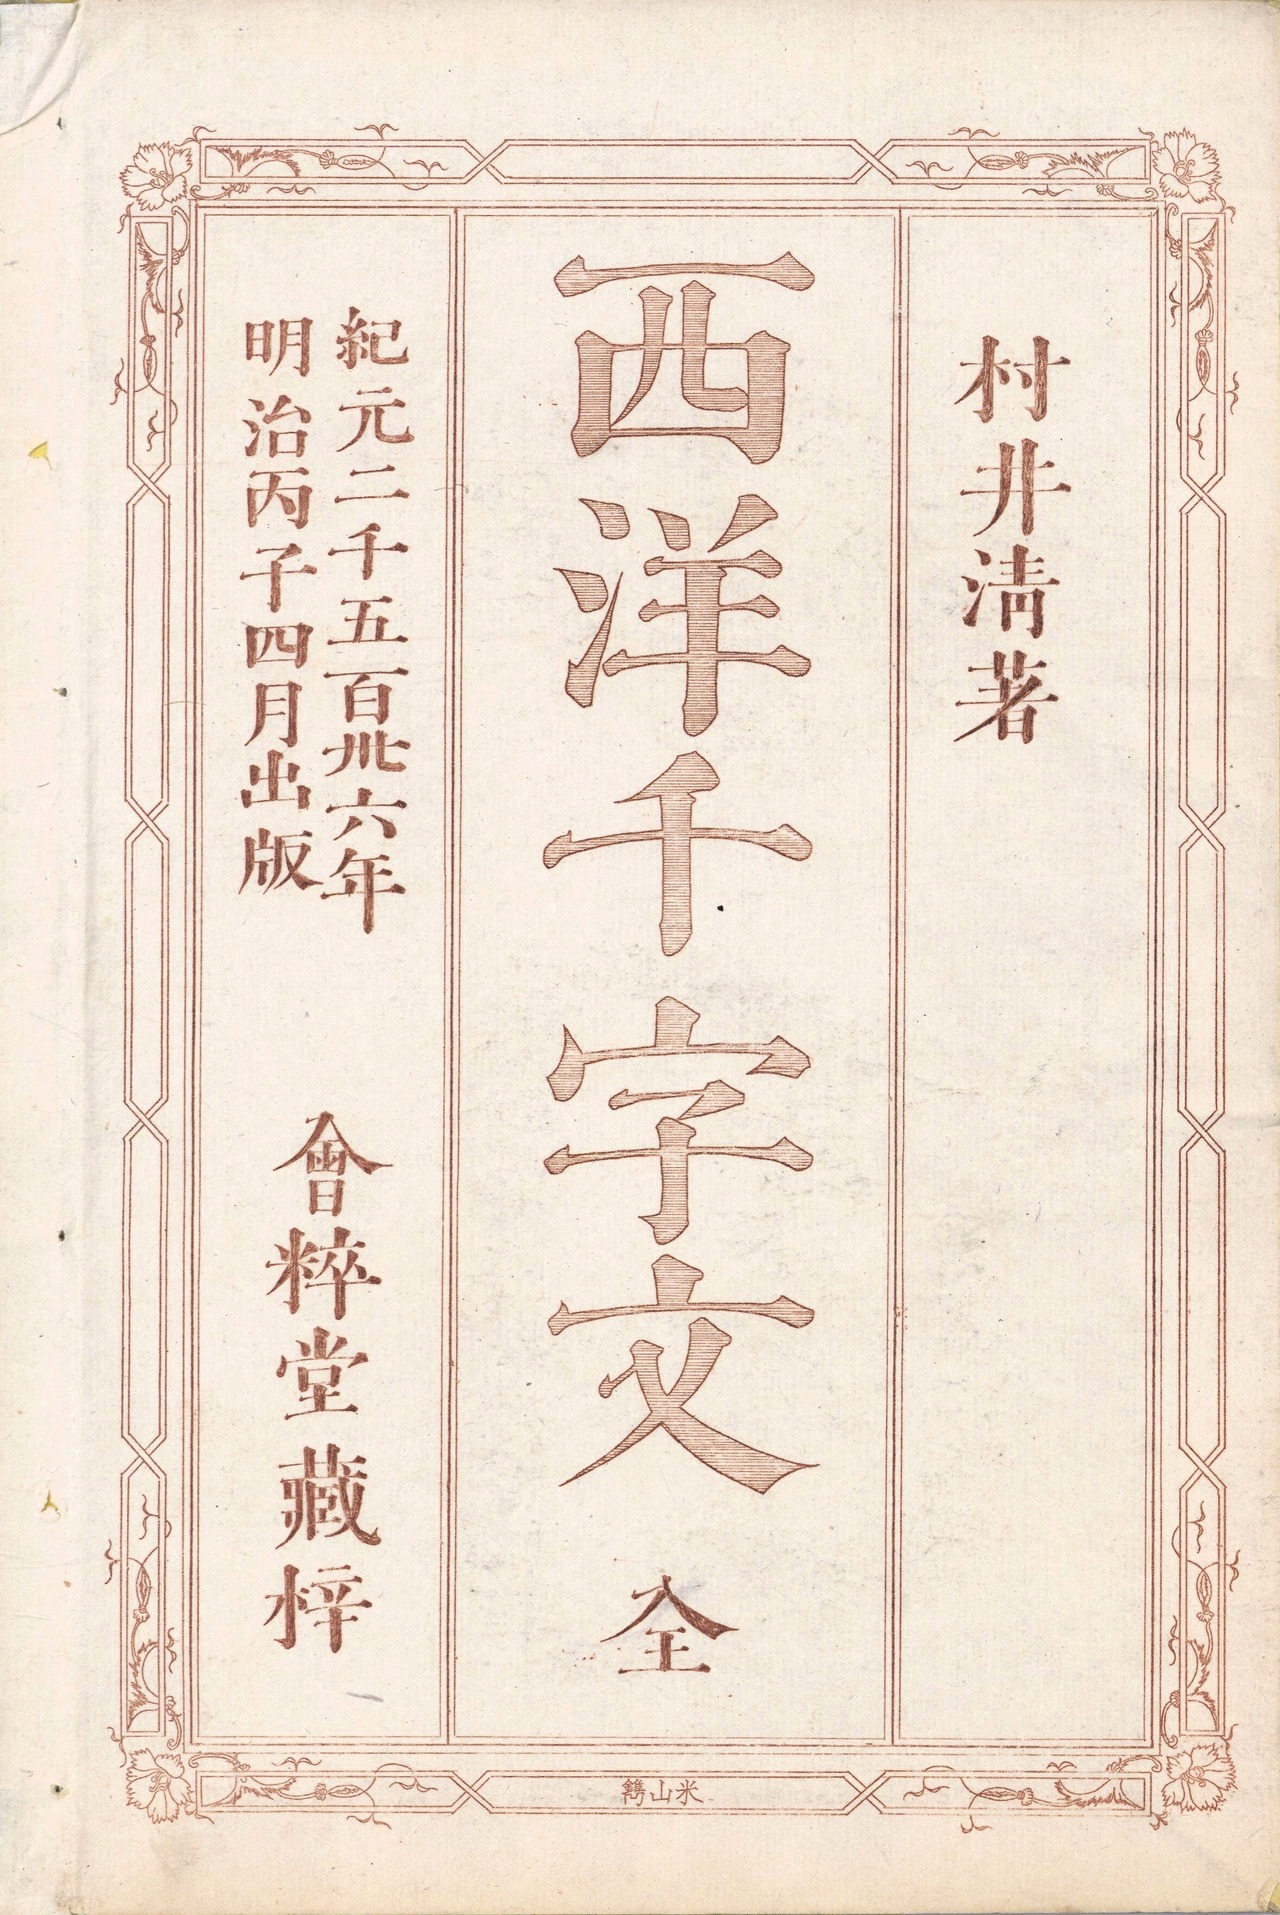 村井淸著
西洋千字文 全
紀元二千五百卅六年
明治丙子四月出版
會粹堂藏梓
米山鐫